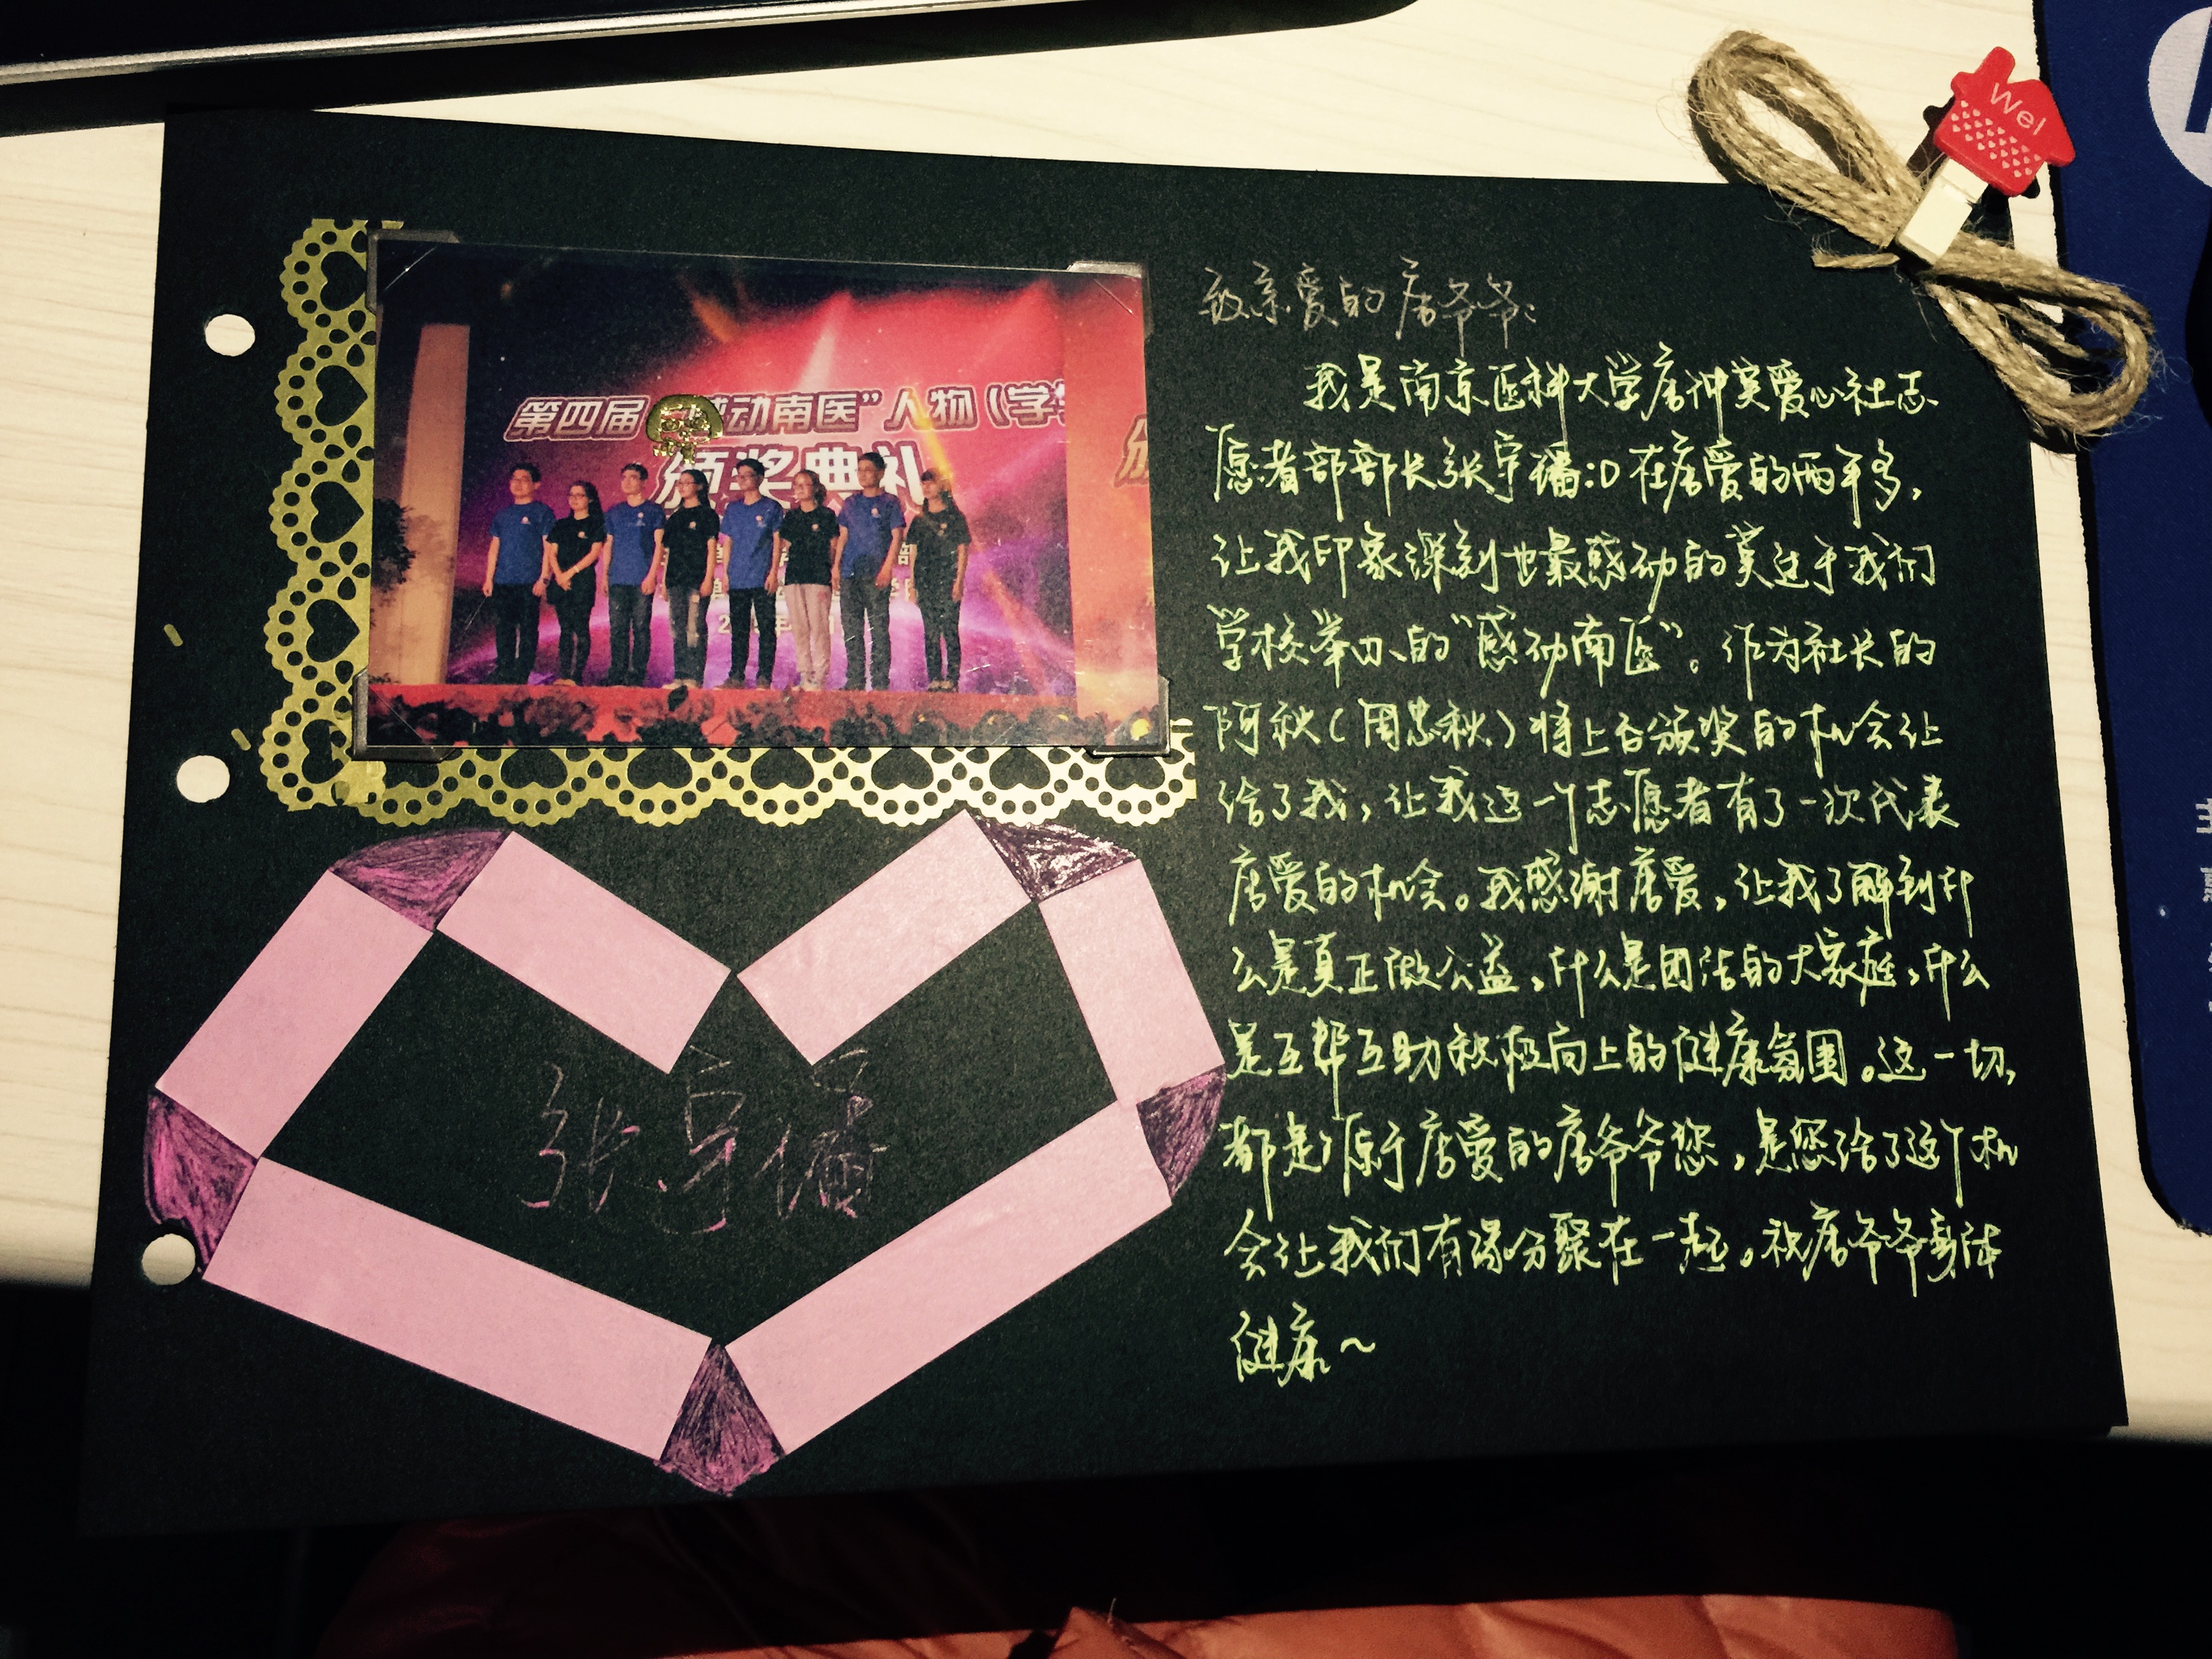 第四届"感动南医"人物(学生
颁奖典礼
颁
Wel
致亲爱的唐爷爷：
我是南京医科大学唐仲英爱心社志
愿者部部长张宇 :D 在唐爱的两年多，
让我印象深刻也最感动的莫过于我们
学校举办的“感动南医”。作为社长的
阿秋（周慧秋）将上台颁奖的机会让
给了我，让我这一个志愿者有了一次代表
唐爱的机会。我感谢唐爱，让我了解到什
么是真正做公益，什么是团结的大家庭，什么
是互帮互助积极向上的健康氛围。这一切，
都是源于唐爱的唐爷爷您，是您给了这个机
会让我们有缘分聚在一起。祝唐爷爷身体
健康～
张宇